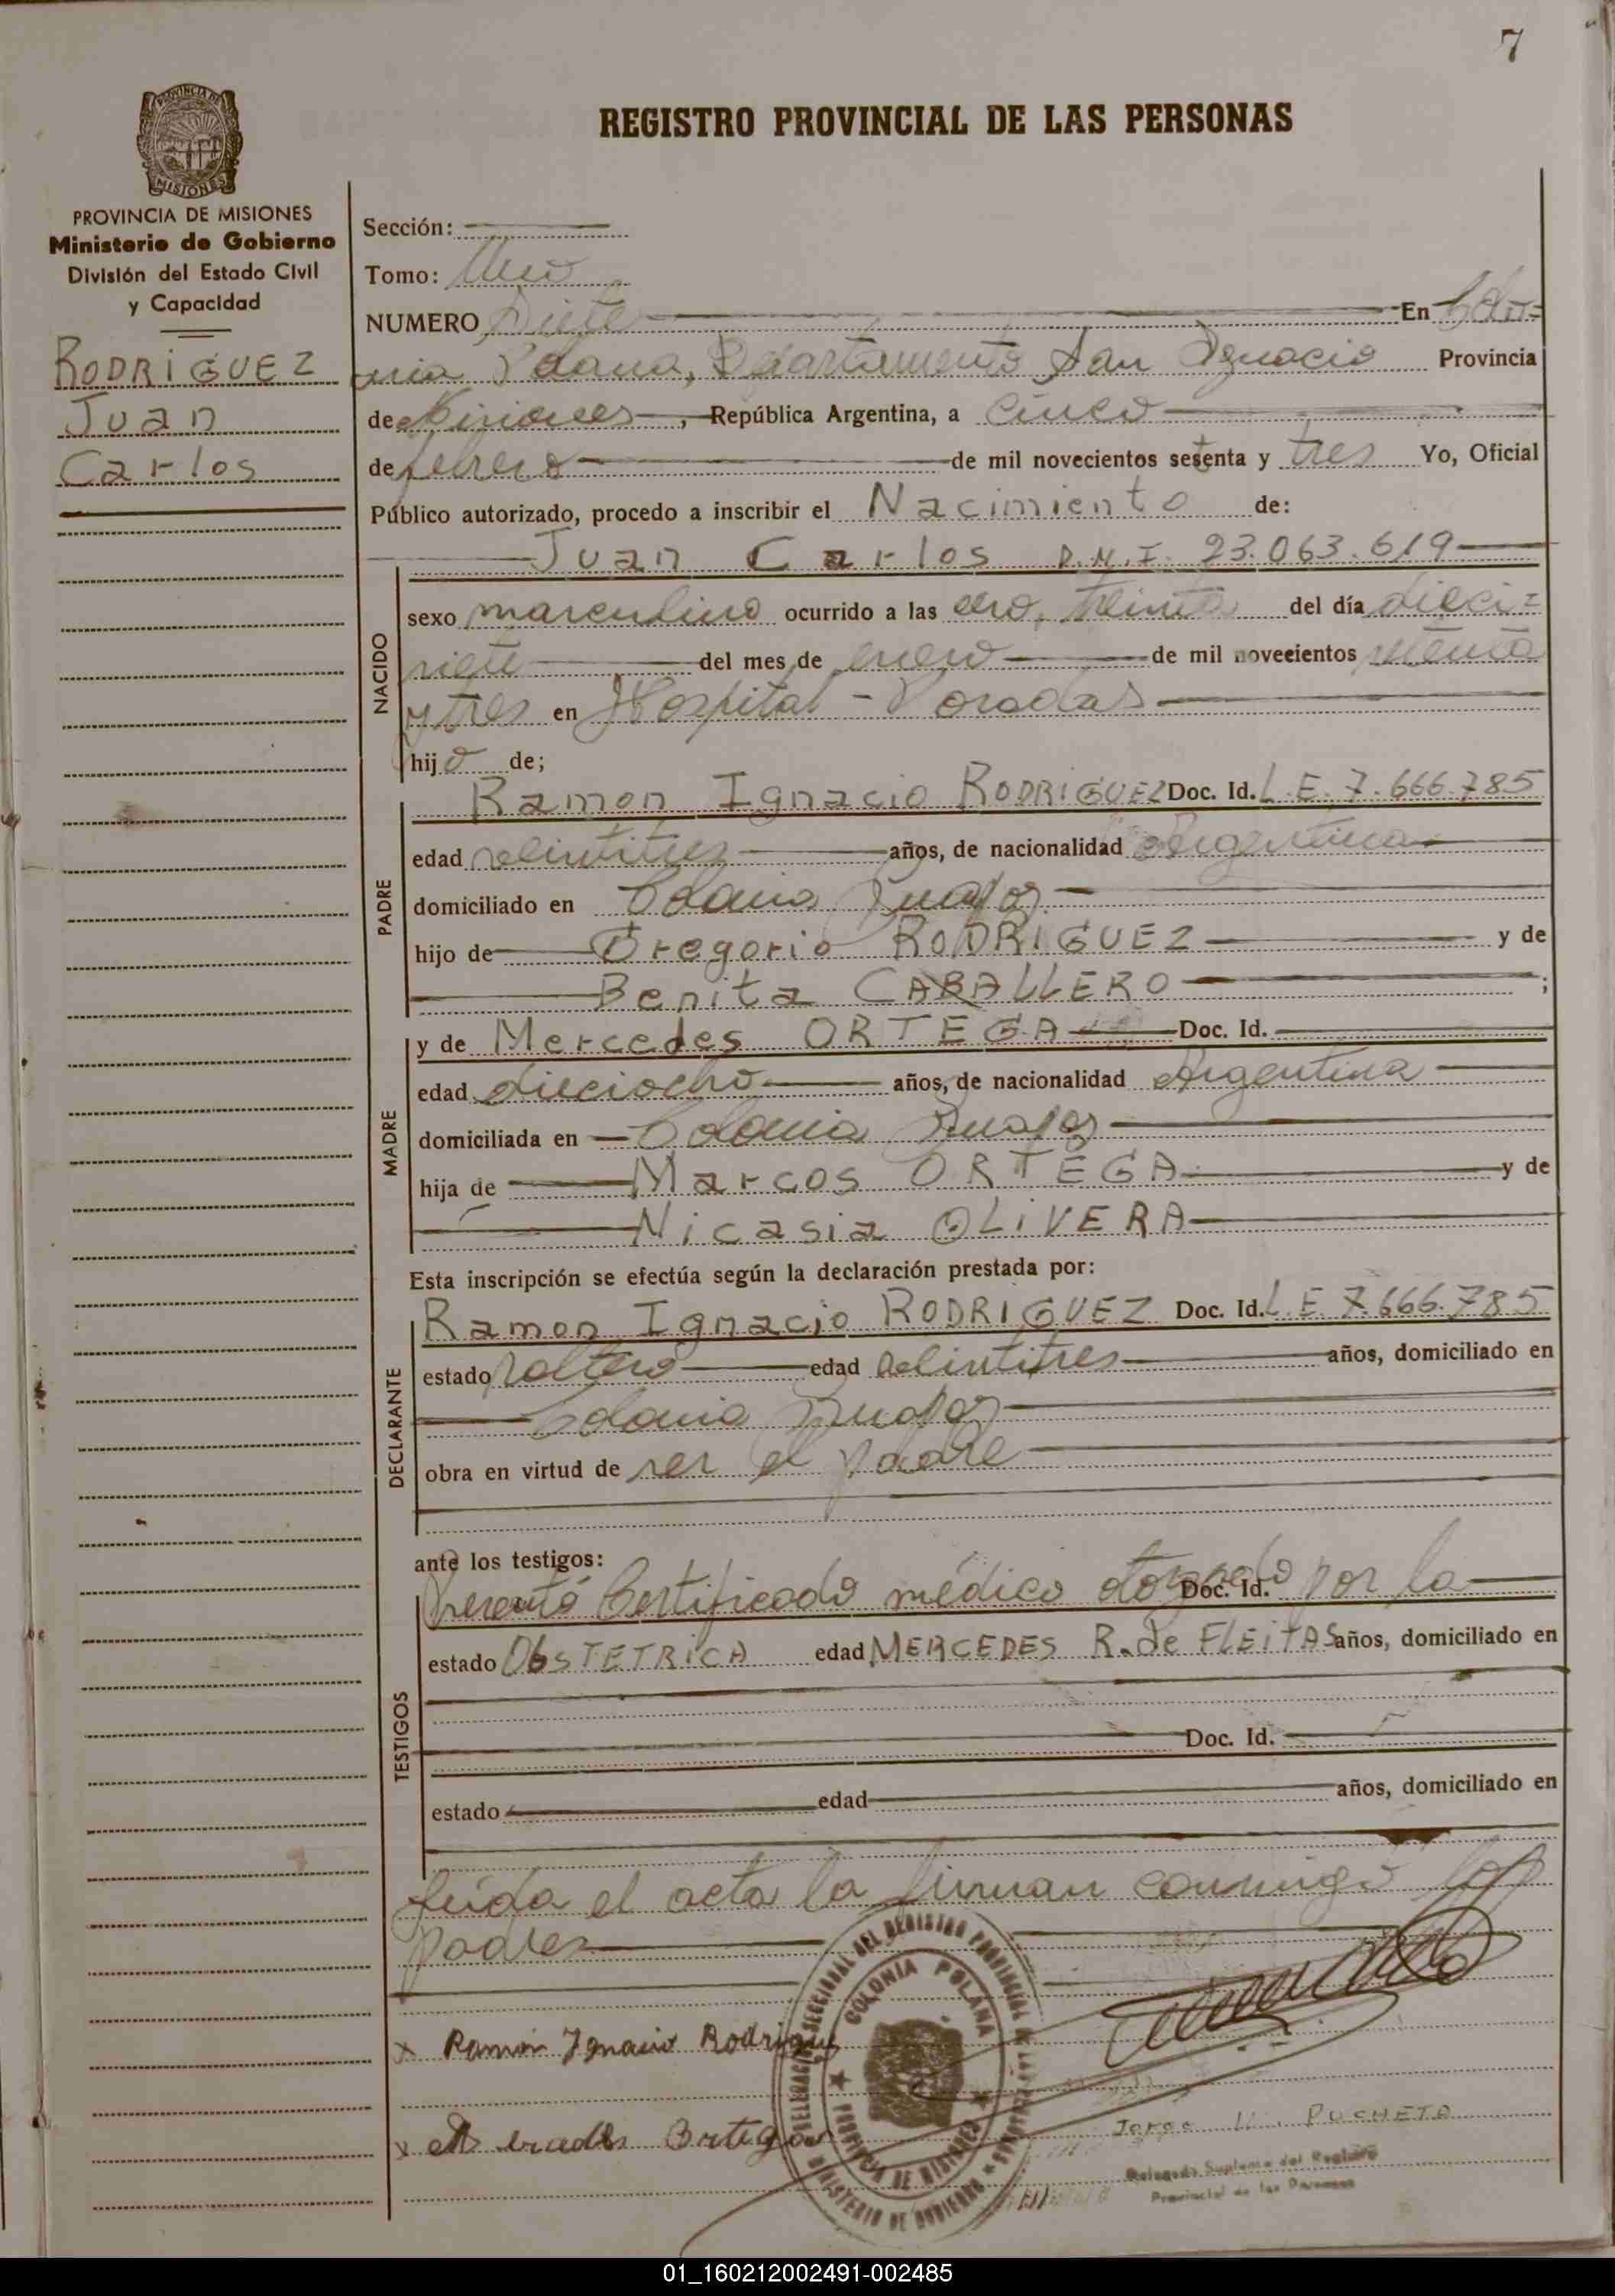 7
REGISTRO PROVINCIAL DE LAS PERSONAS
PROVINCIA DE MISIONES
MISIONES
PROVINCIA DE MISIONES
Ministerio de Gobierno
División del Estado Civil
y Capacidad
RODRIGUEZ
Juan
Carlos
Sección:
Tomo: Uno
NUMERO Siete En Colo-
nia Polana, Departamento San Ignacio Provincia
de Misiones, República Argentina, a cinco
de febrero de mil novecientos setenta y tres Yo, Oficial
Público autorizado, procedo a inscribir el Nacimiento de:
Juan Carlos D.N.I. 23.063.619
NACIDO
sexo masculino ocurrido a las cero, treinta del día dieci-
siete del mes de enero de mil novecientos setenta
y tres en Hospital - Posadas
hijo de;
PADRE
Ramon Ignacio RODRIGUEZ Doc. Id. L.E. 7.666.785
edad veintitres años, de nacionalidad Argentina
domiciliado en Colonia
hijo de Gregorio RODRIGUEZ y de
Benita CABALLERO ;
MADRE
y de Mercedes ORTEGA Doc. Id.
edad dieciocho años, de nacionalidad Argentina
domiciliada en Colonia
hija de Marcos ORTEGA y de
Nicasia OLIVERA
Esta inscripción se efectúa según la declaración prestada por:
DECLARANTE
Ramon Ignacio RODRIGUEZ Doc. Id. L.E. 7.666.785
estado soltero edad veintitres años, domiciliado en
Colonia
obra en virtud de ser el padre
ante los testigos:
TESTIGOS
Presentó Certificado médico otorgado Doc. Id. por la
estado OBSTETRICA edad MERCEDES R. de FLEITAS años, domiciliado en
Doc. Id.
estado edad años, domiciliado en
Leída el acta la firman conmigo los
padres
DELEGACION SECCIONAL DEL REGISTRO PROVINCIAL DE LAS PERSONAS
COLONIA POLANA
PROVINCIA DE MISIONES
MINISTERIO DE GOBIERNO
x Ramón Ignacio Rodriguez
x Ortega
Jorge PUCHETA
Delegado Suplente del Registro
Provincial de las Personas
01_160212002491-002485